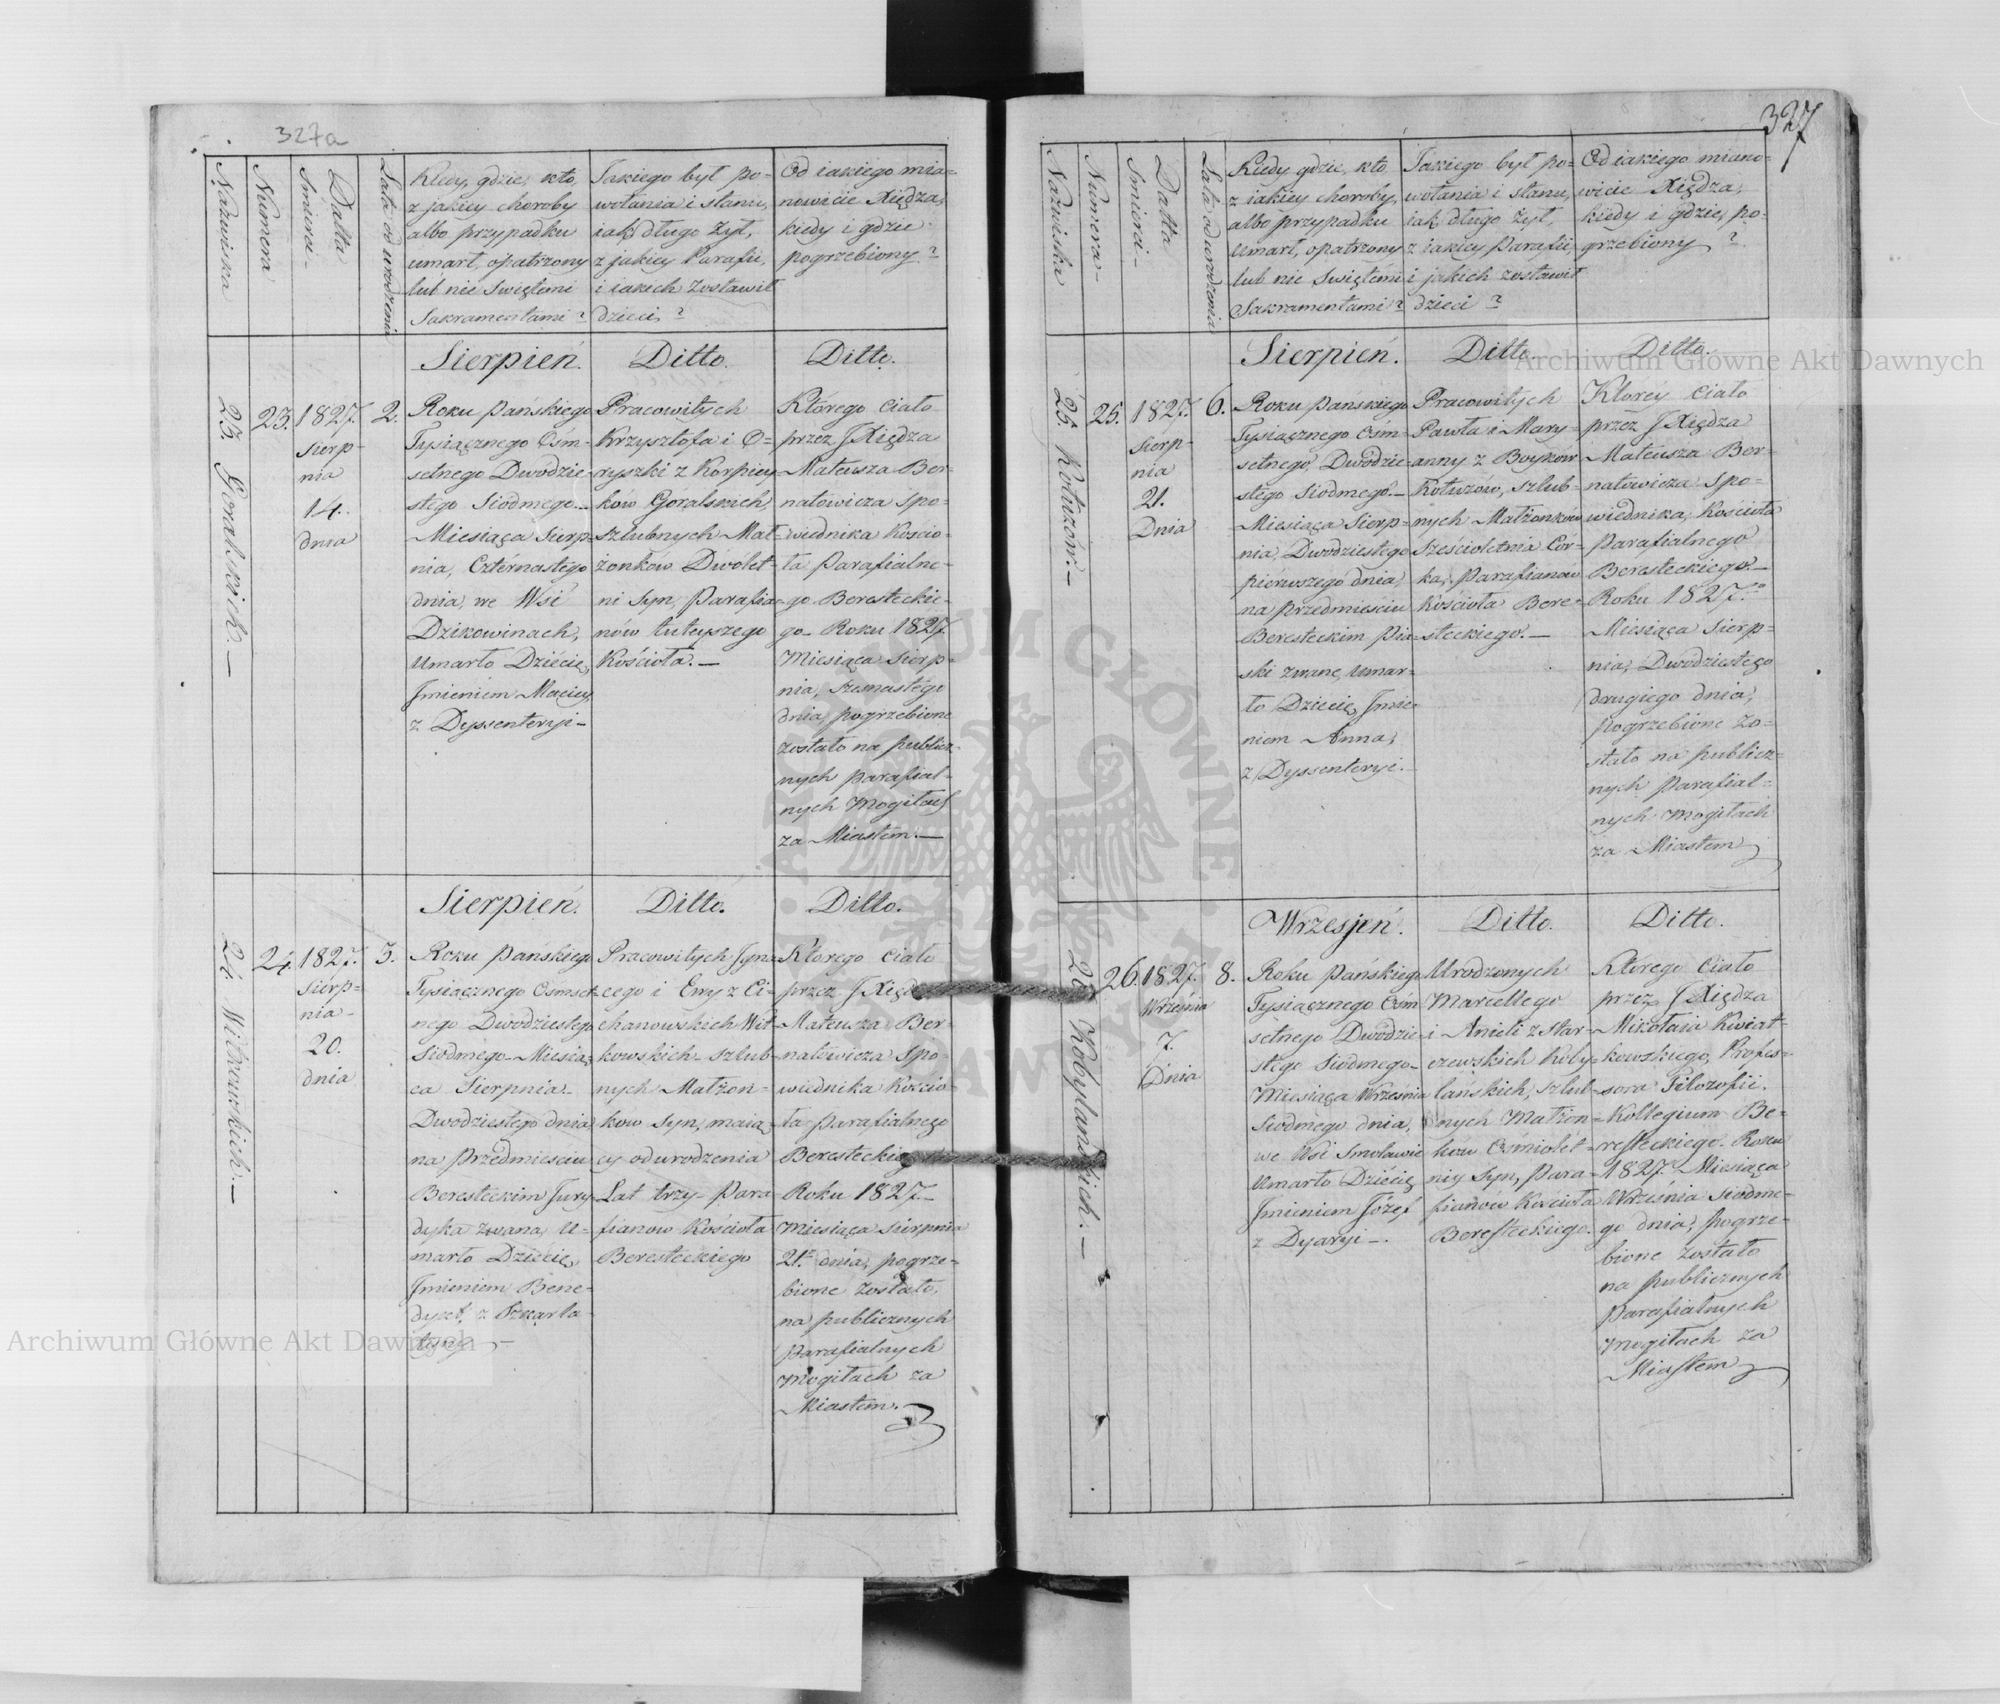 327a
Nazwiska
Numera
Datta
Smierci
Lata od urodzenia
Kiedy, gdzie, kto,
z jakiey choroby
albo przypadku
umarł, opatrzony
lub nie Swiętemi
Sakramentami?
Jakiego był po-
wołania i stanu,
iak długo żył,
z jakiey Parafii,
i iakich zostawił
dzieci?
Od iakiego mia-
nowicie Xiędza,
kiedy i gdzie
pogrzebiony?
23. Goralskich.—
23.
1827.
Sierp-
nia
14.
dnia
2.
Sierpień.
Roku Pańskiego
Tysiącznego Ośm-
setnego Dwódzie-
stego Siodmego.—
Miesiąca Sierp-
nia, Czternastego
dnia, we Wsi
Dzikowinach,
umarło Dziécię,
Jmieniem Maciey,
z Dyssenteryi—
Ditto.
Pracowitych
Krzysztofa i O-
ryszki z Korpiey-
ków Goralskich,
szlubnych Mał-
żonków Dwólet-
ni Syn, Parafia-
nów tuteyszego
Kościoła.—
Ditto.
Którego Ciało
przez J Xiędza
Mateusza Ber-
natowicza Spo-
wiednika Koscio-
ła Parafialne-
go Beresteckie-
go. Roku 1827.
Miesiąca Sierp-
nia, Szesnastego
dnia, pogrzebione
zostało na publicz-
nych parafial-
nych Mogiłach
za Miastem.—
24. Witkowskich.—
24.
1827.
Sierp-
nia
20.
dnia
3.
Sierpień.
Roku Pańskiego
Tysiącznego Ośmset-
nego Dwodziestego
Siodmego Miesią-
ca Sierpnia
Dwodziestego dnia
na Przedmiesciu
Beresteckim Jury-
dyka zwana, u-
marło Dziecię,
Jmieniem Bene-
dykt, z Szkarla-
tyny —
Ditto.
Pracowitych Jgna-
cego i Ewy z Ci-
chanowskich Wit-
kowskich szlub-
nych Małżon-
ków Syn, maią-
cy od urodzenia
Lat trzy Para-
fianow Kościoła
Beresteckiego
Ditto.
Którego Ciało
przez J Xiędza
Mateusza Ber-
natowicza Spo-
wiednika Koscio-
ła Parafialnego
Beresteckiego
Roku 1827.
Miesiąca Sierpnia
21. dnia, pogrze-
bione zostało,
na publicznych
parafialnych
Mogiłach za
Miastem.
327
Nazwiska
Numera
Datta
Smierci
Lata od urodzenia
Kiedy gdzie, kto
z iakiey choroby,
albo przypadku
umarł, opatrzony
lub nie Swiętemi
Sakramentami?
Jakiego był po-
wołania i stanu,
iak długo żył,
z iakiey Parafii,
i jakich zostawił
dzieci?
Od iakiego miano-
wicie Xiędza,
kiedy i gdzie, po-
grzebiony?
25. Kotuzów.—
25.
1827.
Sierp-
nia
21.
Dnia
6.
Sierpień.
Roku Pańskiego
Tysiącznego Ośm-
setnego, Dwodzie-
stego Siodmego.—
Miesiąca Sierp-
nia, Dwodziestego
pierwszego dnia,
na przedmieściu
Beresteckim Pia-
ski zwane, umar-
ło Dziecię, Jmie-
niem Anna,
z Dyssenteryi.—
Ditto.
Pracowitych
Pawła i Mary-
anny z Boyków
Kotuzów, szlub-
nych Małżonków
Sześcioletnia Cór-
ka, Parafianów
Kościoła Bere-
steckiego.—
Ditto.
Ktorey Ciało
przez J Xiędza
Mateusza Ber-
natowicza Spo-
wiednika, Kościoła
Parafialnego
Beresteckiego.—
Roku 1827.
Miesiąca Sierp-
nia, Dwodziestego
drugiego dnia,
pogrzebione zo-
stało na publicz-
nych Parafial-
nych Mogiłach
za Miastem
26. Kobylańskich.—
26.
1827.
Września
7.
Dnia
8.
Wrzesień.
Roku Pańskiego
Tysiącznego Ośm
setnego Dwódzie-
stego Siodmego
Miesiąca Września
Siodmego dnia,
we Wsi Smolawie
umarło Dziécię
Jmieniem Józef
z Dyaryi—.
Ditto.
Urodzonych
Marcellego
i Anieli z Star-
czewskich Koby-
lańskich, szlub-
nych Małżon-
ków Ośmiolet-
niy Syn, Para-
fianów Kościoła
Beresteckiego.
Ditto.
Którego Ciało
przez J Xiędza
Mikołaia Kwiat-
kowskiego, Profes-
sora Filozófii.
Kollegium Be-
resteckiego. Roku
1827. Miesiąca
Września siodme-
go dnia, pogrze-
bione zostało
na publicznych
Parafialnych
Mogiłach za
Miastem
Archiwum Główne Akt Dawnych
Archiwum Główne Akt Dawnych
ARCHIWUM GŁÓWNE AKT DAWNYCH